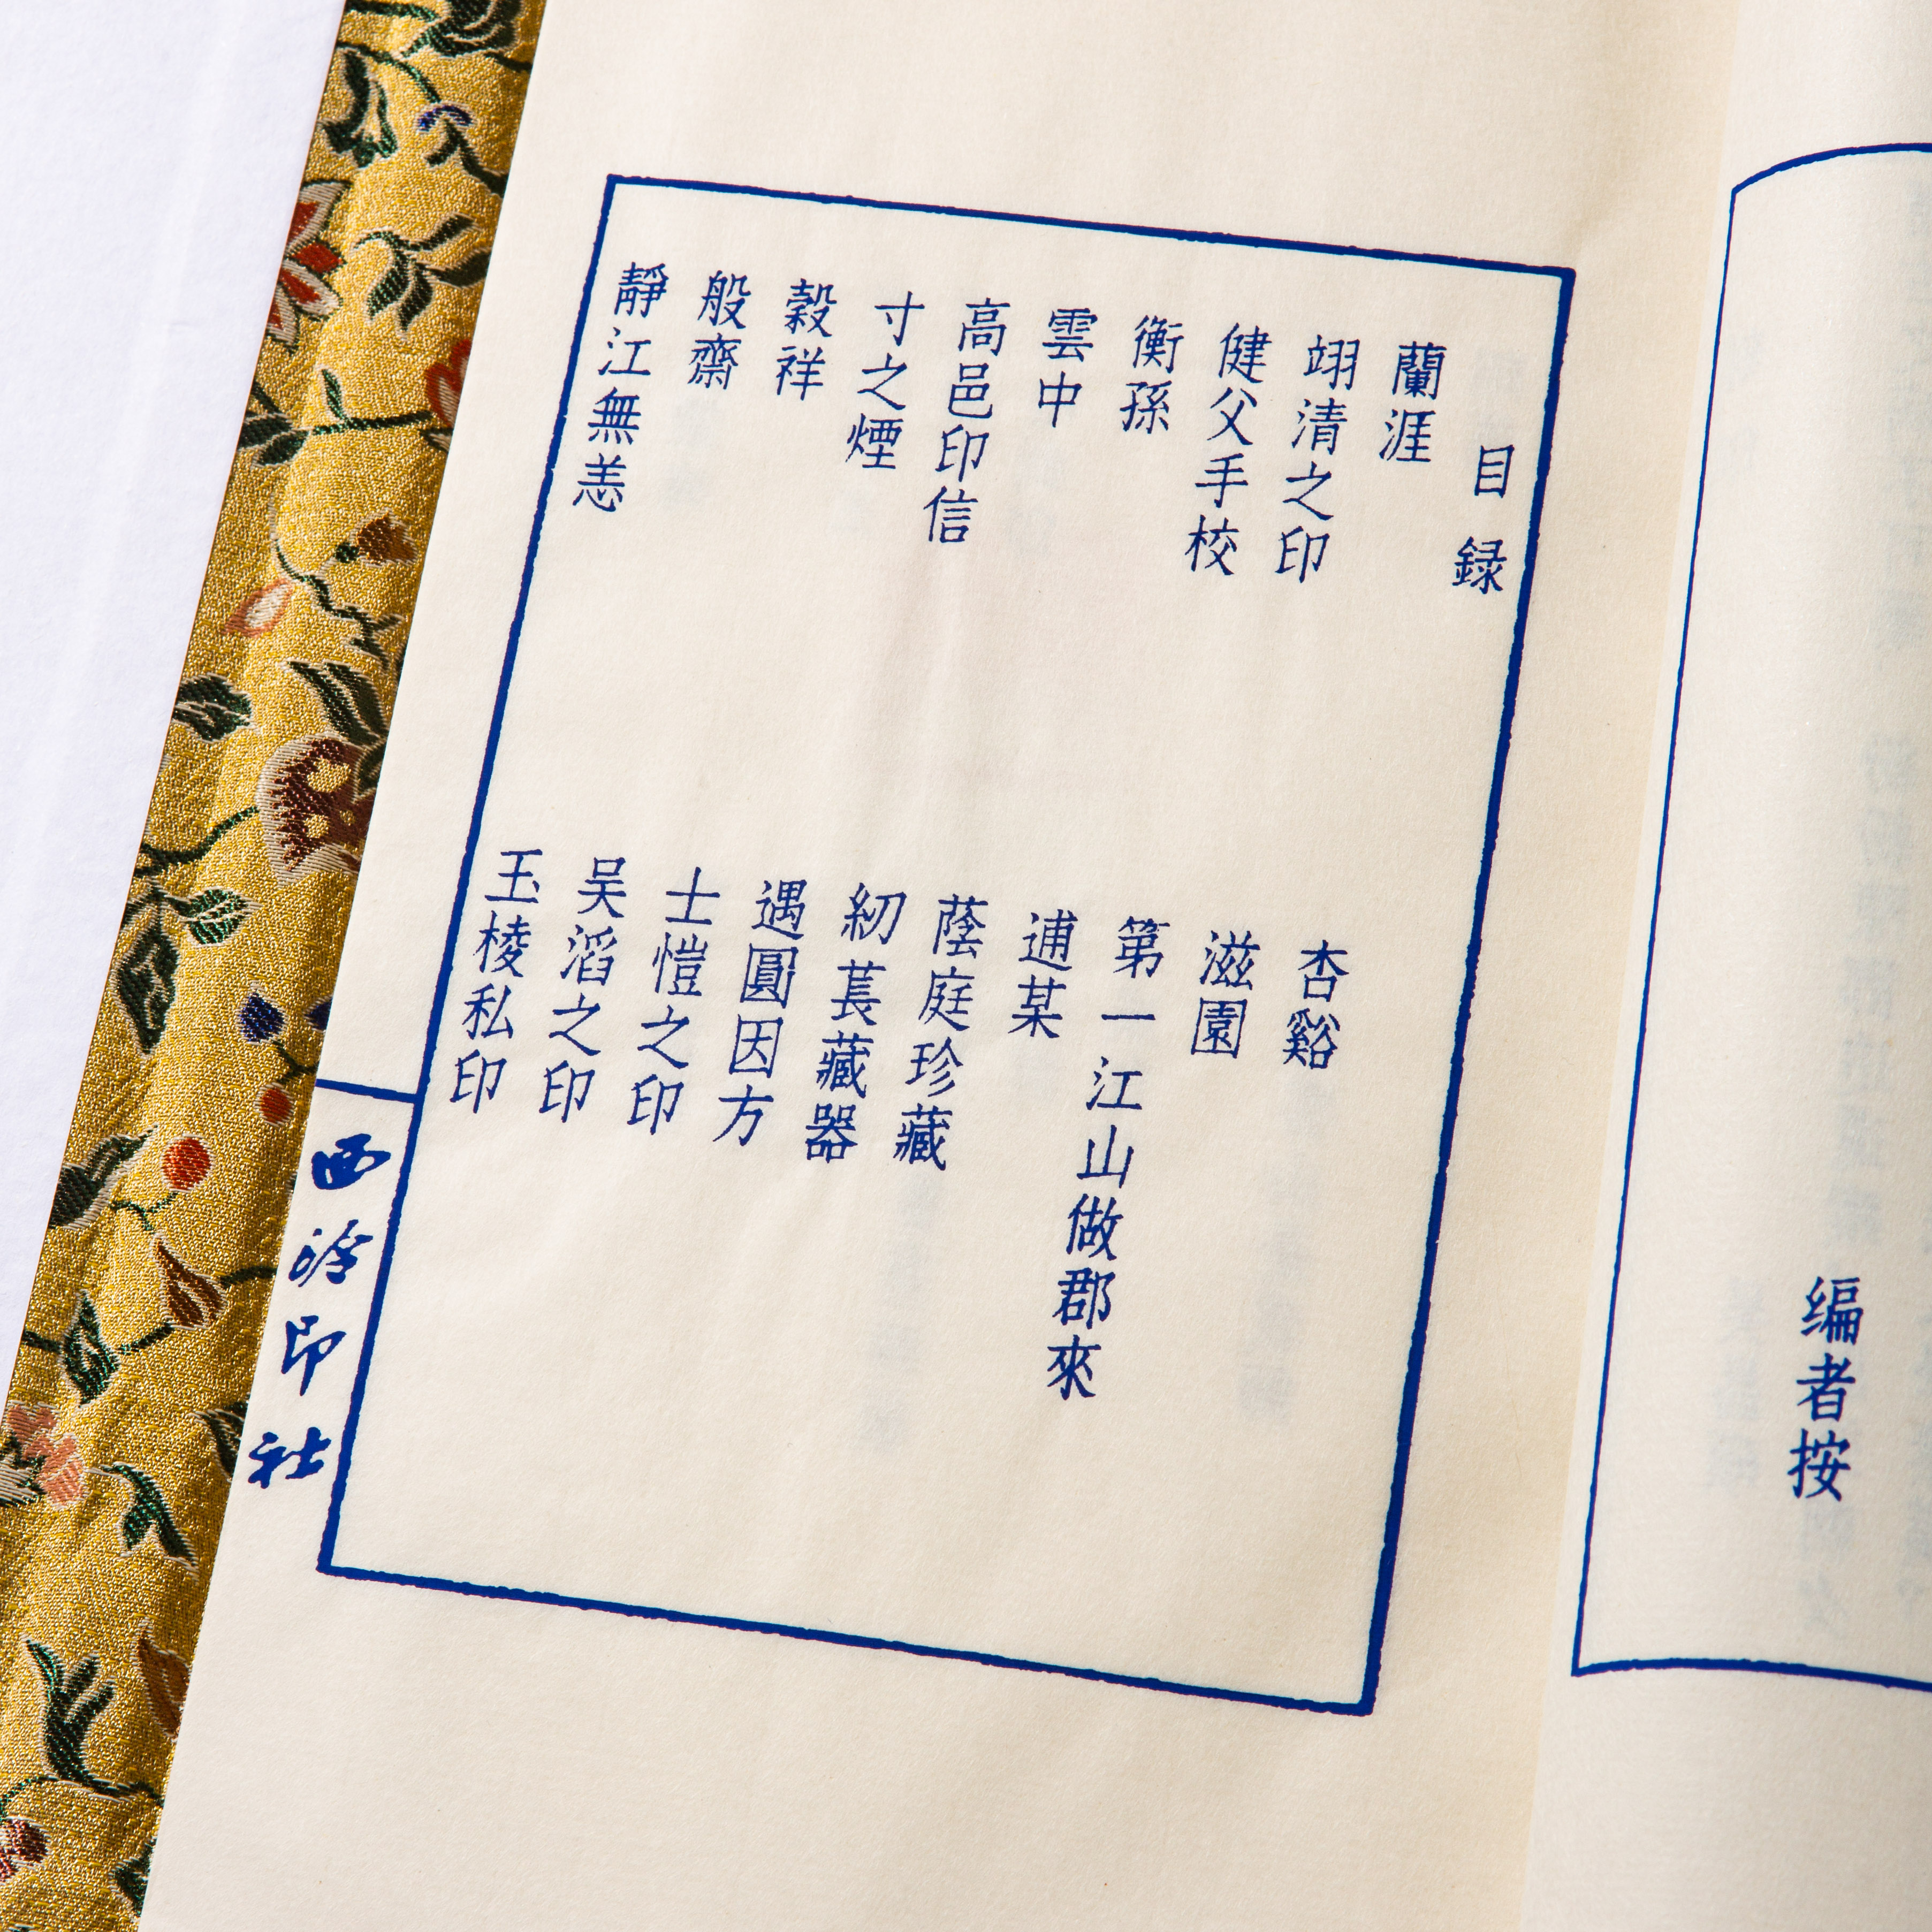 编者按
目録
蘭涯
翊清之印
健父手校
衡孫
雲中
高邑印信
寸之煙
穀祥
般齋
靜江無恙
杏谿
滋園
第一江山做郡來
逋某
蔭庭珍藏
紉萇藏器
遇圓因方
士愷之印
吴滔之印
玉棱私印
西泠印社